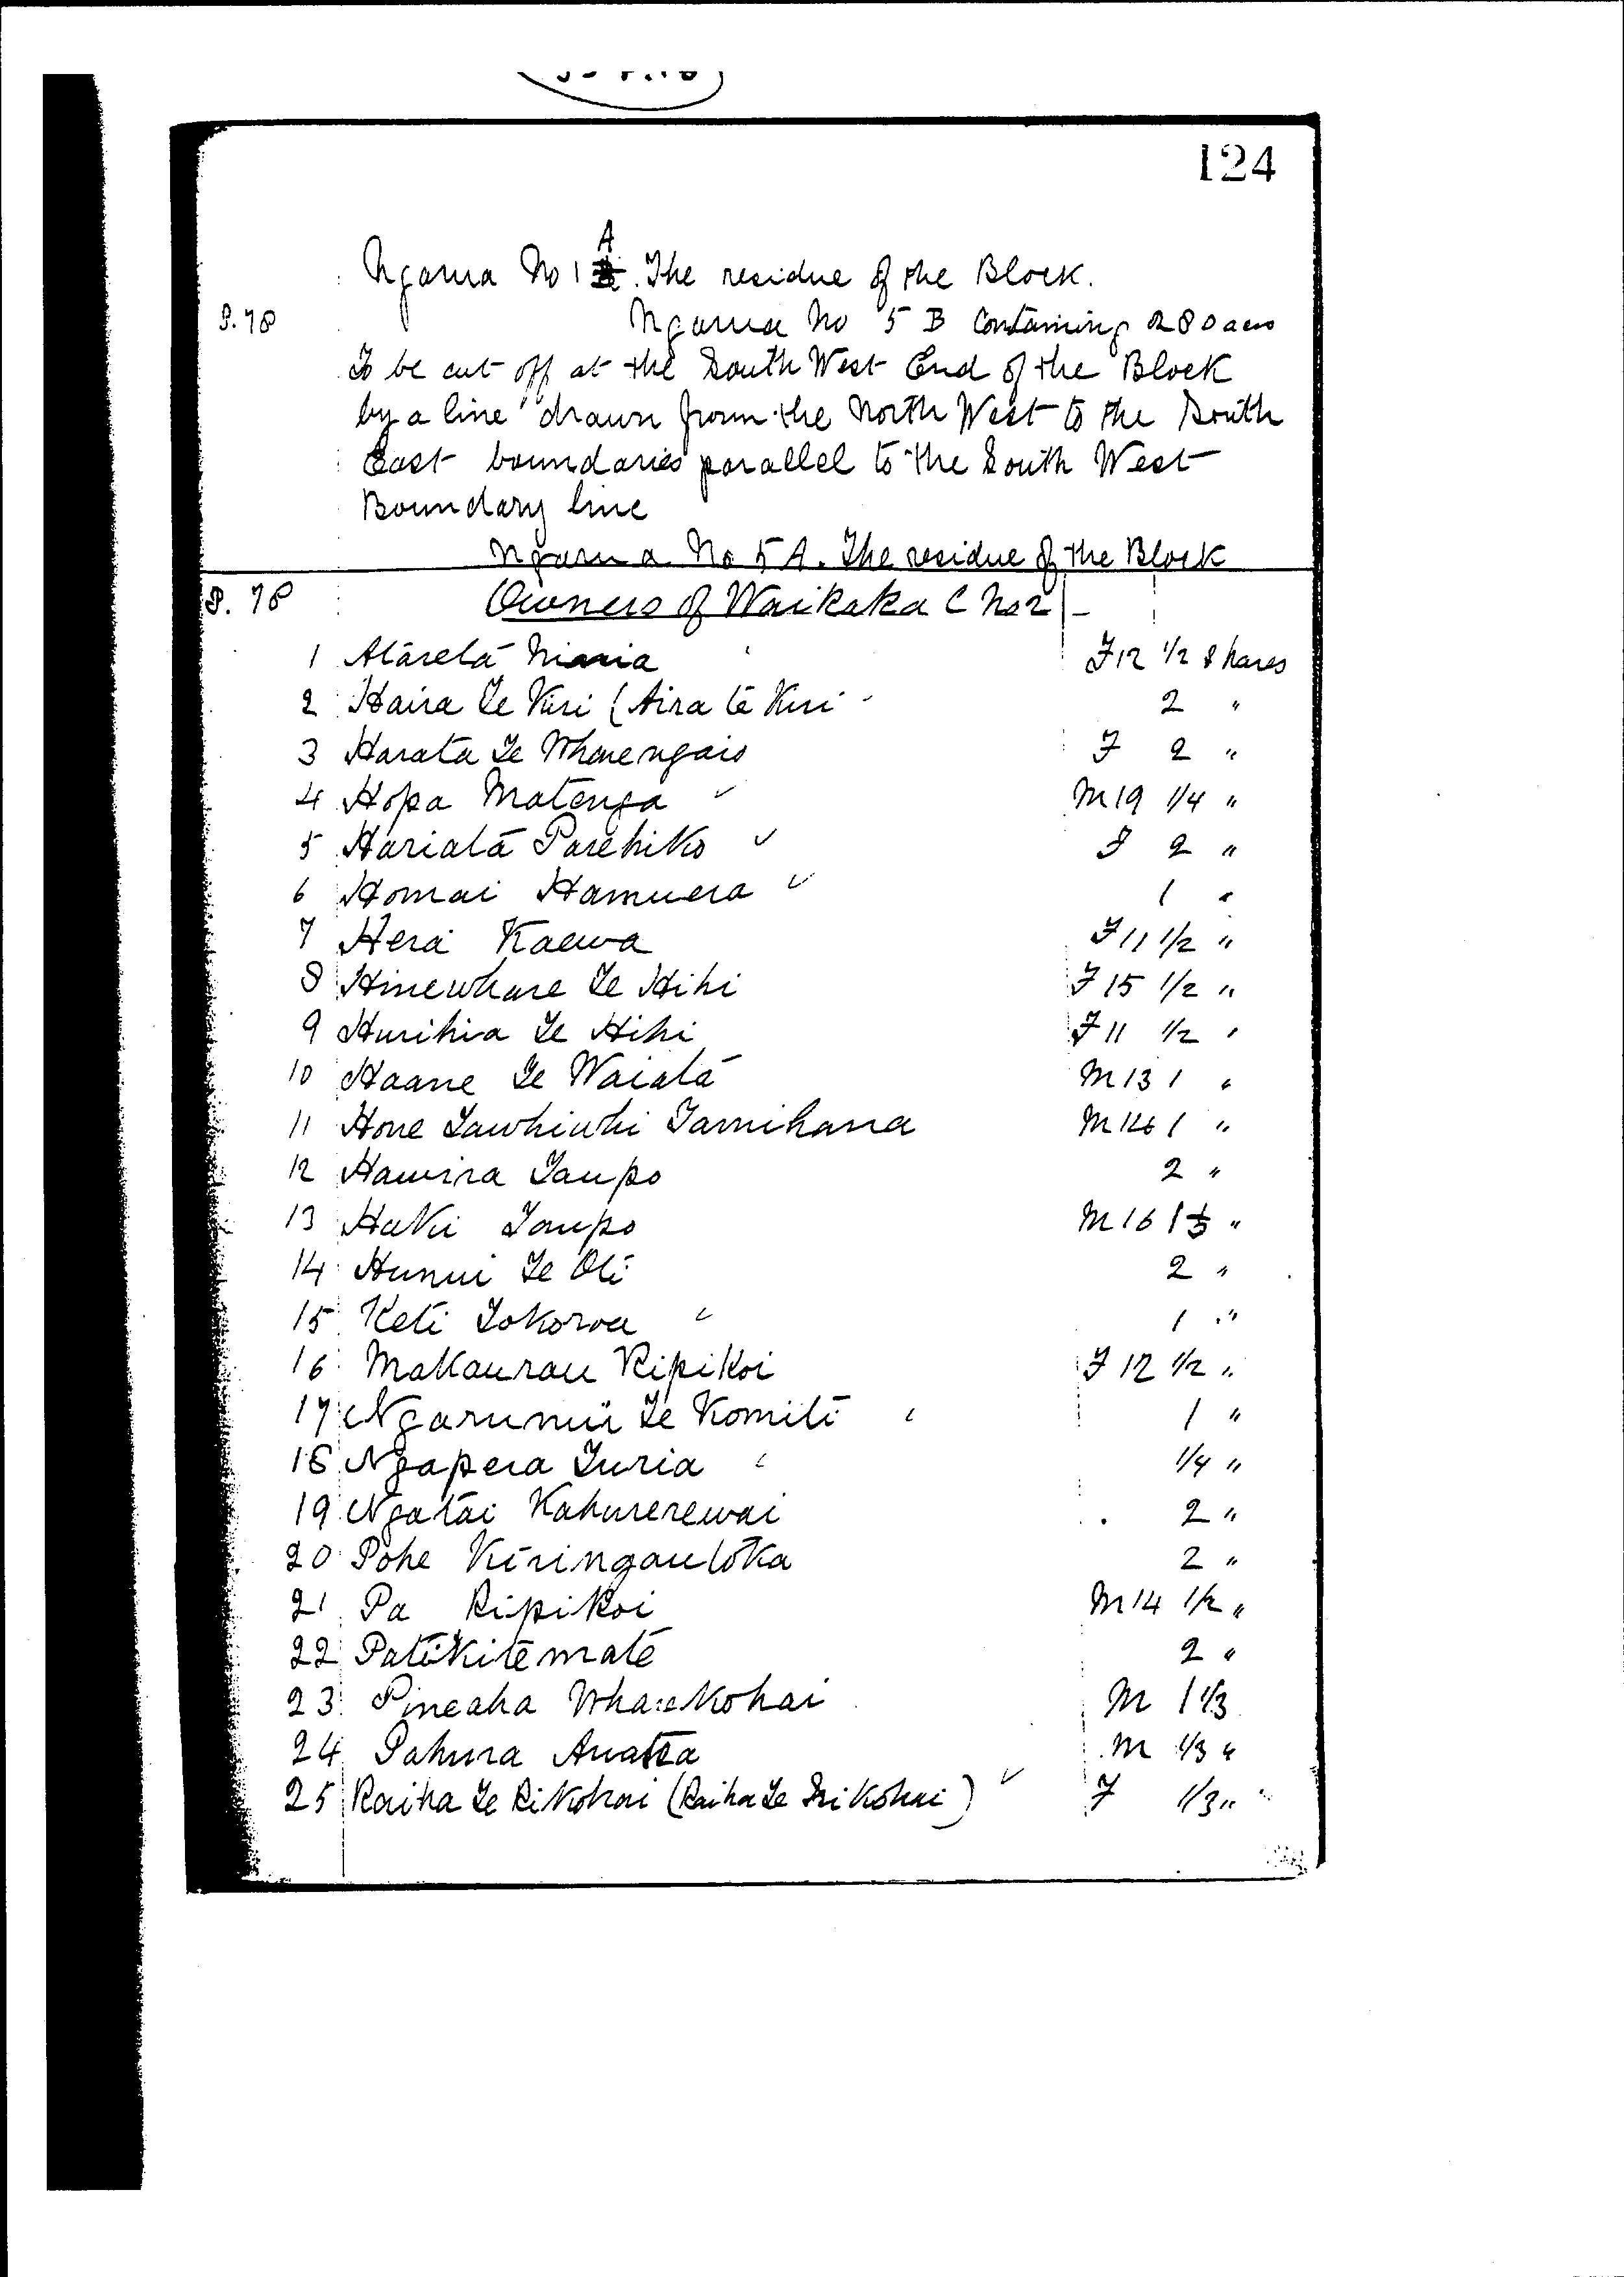 124
Ngarua No 1 A. The residue of the Block.
P. 78 Ngarua No 5 B Containing 280 acres
To be cut off at the South West End of the Block
by a line drawn from the North West to the South
East boundaries parallel to the South West
Boundary line
Ngarua No 5 A. The residue of the Block
P. 78 Owners of Waikaka C No 2
1 Atareta Niania F 12 1/2 Shares
2 Haira Te Kiri (Aira te Kiri 2 "
3 Harata Te Wharengaio F 2 "
4 Hopa Matenga M 19 1/4 "
5 Hariata Parehiko F 2 "
6 Homai Hamuera 1 "
7 Hera Kaewa F 11 1/2 "
8 Hinewhare Te Hihi F 15 1/2 "
9 Hurihia Te Hihi F 11 1/2 "
10 Haane Te Waiata M 13 1 "
11 Hone Tawhiwhi Tamihana 1 "
12 Hawira Taupo 2 "
13 Haki Taupo M 16 1 1/3 "
14 Hunui Te Oti 2 "
15 Keti Tokoroa 1 "
16 Makaurau Ripikoi F 12 1/2 "
17 Ngarunui Te Komiti 1 "
18 Ngapera Turia 1/4 "
19 Ngatai Kahurerewai 2 "
20 Pohe Kiringautoka 2 "
21 Pa Ripikoi M 14 1/2 "
22 Patukitemate 2 "
23 Pineaha Wharekohai M 1 1/3
24 Pahura M 1/3 "
25 Raiha Te Rikohai (Raiha Te Irikohai) F 1/3 "